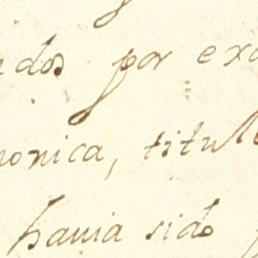 dos por exa
onica, titul
havia sido